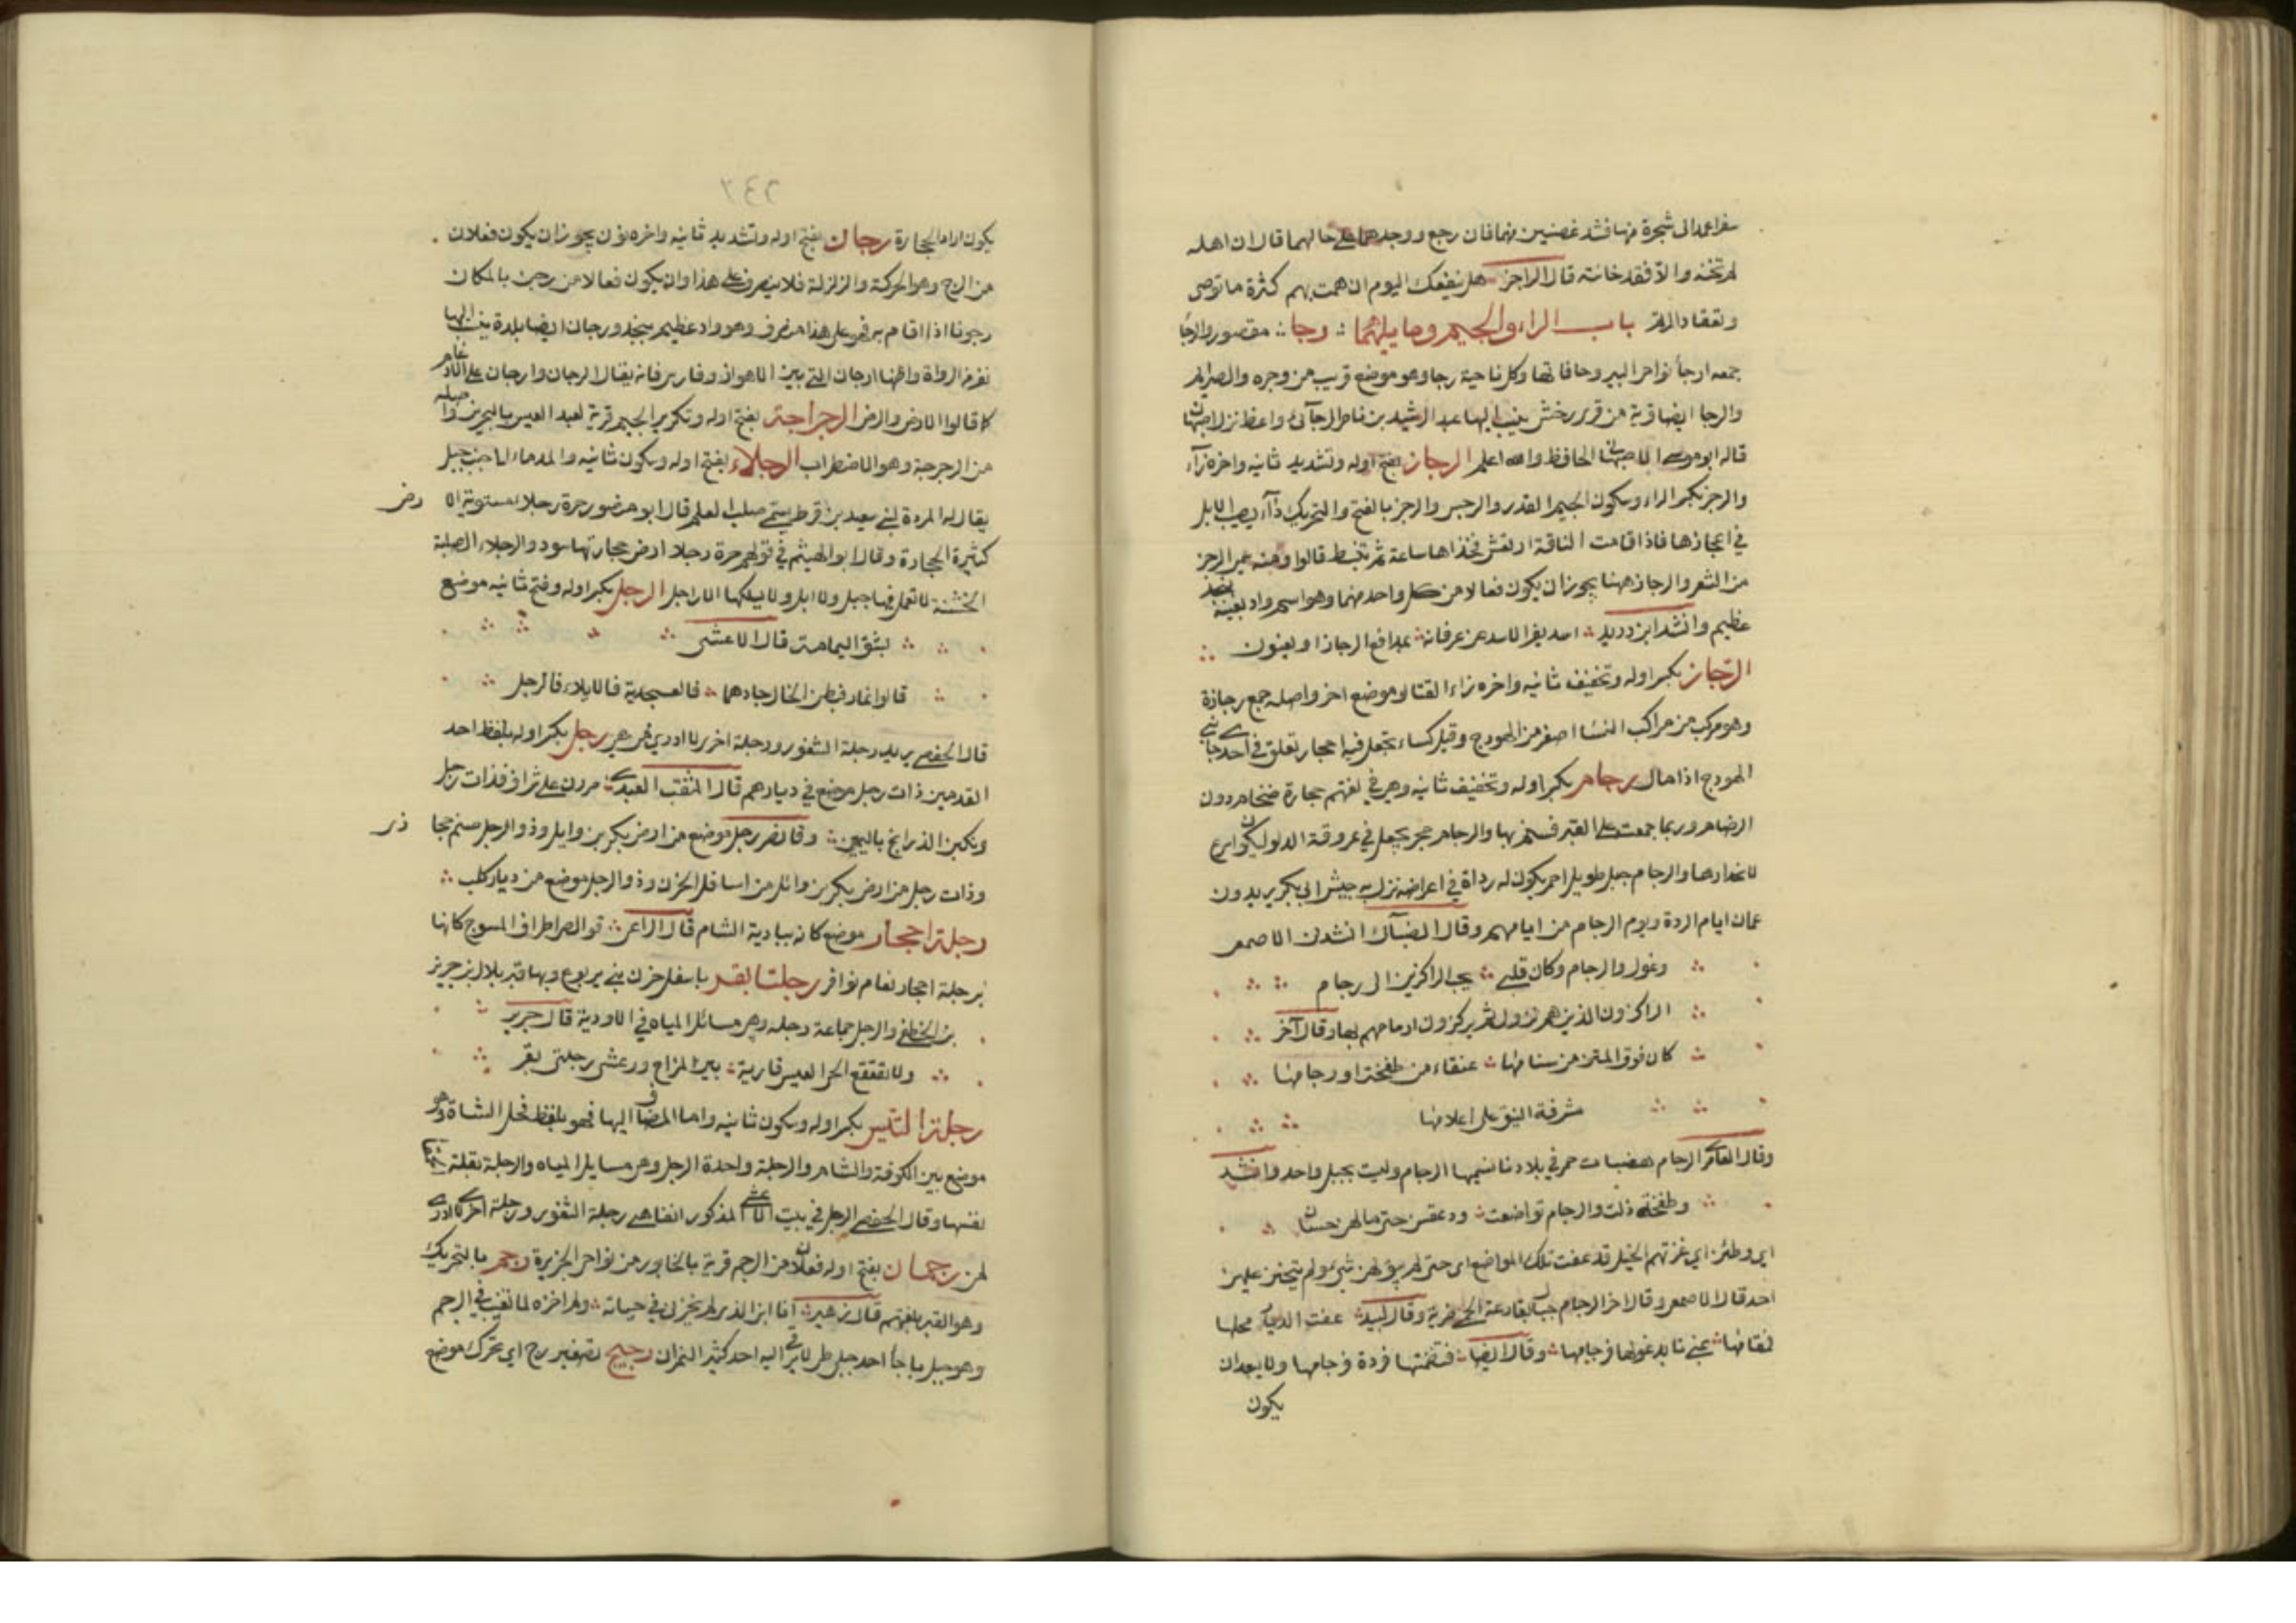 سفرا عمد الى شجرة منها فشد غصنين منها فان رجع ووجدهما على حالهما قال ان اهله
لم تخنه والا فقد خانته قال الراجز هل ينفعك اليوم ان همت بهم كثرة ما توصى
وتعقاد الرتم باب الراء والجيم وما يليهما رجا مقصور والرجا
جمعه ارجأ نواحى البير وحافاتها وكل ناحية رجا وهو موضع قريب من وجرة والصرايم
والرجا ايضا قرية من قرى سرخس ينسب اليها عبد الرشيد بن ناصر الرجآئى واعظ نزل اصبهان
قاله ابو موسى الاصبهانى الحافظ والله اعلم الرجاز بفتح اوله وتشديد ثانيه واخره زآء
والرجز بكسر الراء وسكون الجيم القذر والرجس والرجز بالفتح والتحريك دآء يصيب الابل
في اعجازها فاذا قامت الناقة ارتعش فخذاها ساعة ثم تنبسط قالوا ومنه سمى الرجز
من الشعر والرجاز ههنا يجوز ان يكون فعالا من كل واحد منهما وهو اسم واد بعينه بنجد
عظيم وانشد ابن دريد اسد يفر الاسد من عرفانه بمدافع الرجاز او بعيون
الرجاز بكسر اوله وتخفيف ثانيه واخره زاء القتال وموضع اخر واصله جمع رجازة
وهو مركب من مراكب النسا اصغر من الهودج وقيل كساء تجعل فيه احجار تعلق في احد جانبي
الهودج اذا مال رجام بكسر اوله وتخفيف ثانيه وهى في لغتهم حجارة ضخام دون
الرضام وربما جمعت على القبر فسنم بها والرجام حجر يجعل في عرقوة الدلو ليكون اسرع
لانحدارها والرجام جبل طويل احمر يكون له رداة في اعراضه نزل به جيش ابى بكر يريدون
عمان ايام الردة ويوم الرجام من ايامهم وقال الضباب انشدنى الاصمعى
وغول والرجام وكان قلبي يحب الراكزين الى رجام
الراكزون الذين هم نزول ثم يركزون ارماحهم بها وقال آخر
كان فوق المتن من سنامها عنقاء من طخفة او رجامها
مشرفة النيق على اعلامها
وقال العامرى الرجام هضبات حمر في بلادنا نسميها الرجام وليست بجبل واحد وانشد
وطخفة ذلت والرجام تواضعت ودعقن حتى مالهن حسان
اى وطئن اى غزتهم الخيل قد عفت تلك المواضع اى حتى لم يبق لهن شئ ولم يتحنن عليهن
احد قال الاصمعى وقال اخر الرجام جبال بقارعة الحمى حمى ضرية وقال لبيد عفت الديار محلها
فمقامها بمنى تابد غولها فرجامها وقال ايضا فتضمنتها فردة فرجامها ولا يبعد ان
يكون
٢٤٦
يكون اراد الحجارة رجان بفتح اوله وتشديد ثانيه واخره نون يجوز ان يكون فعلان
من الرج وهو الحركة والزلزلة فلا ينصرف على هذا وان يكون فعالا من رجن بالمكان
رجونا اذا اقام به فهو على هذا منصرف وهو واد عظيم بنجد ورجان ايضا بلدة ينسب اليها
نفر من الرواة واظنها ارجان التى بين الاهواز وفارس فانه يقال الرجان وارجان على الادغام
كما قالوا الارض والرض الرجراجة بفتح اوله وتكرير الجيم قرية لعبد القيس بالبحرين واصله
من الرجرجة وهو الاضطراب الرجلاء بفتح اوله وسكون ثانيه والمد ماء الى جنب جبل
يقال له المردة لبنى سعيد بن قرط يسمى صلب العلم قال ابو منصور حرة رجلاء مستوية الارض
كثيرة الحجارة وقال ابو الهيثم في قولهم حرة رجلاء ارض حجارتها سود والرجلاء الصلبة
الخشنة لا تعمل فيها خيل ولا ابل ولا يسلكها الا راجل الرجل بكسر اوله وفتح ثانيه موضع
بشق اليمامة قال الاعشى
قالوا نمار فبطن الخال جادهما فالعسجدية فالابلاء فالرجل
قال الحفصى يريد رجلة الشعور ورجلة اخرى لا ادرى لمن هى رجل بكسر اوله بلفظ احد
القدمين ذات رجل موضع في ديارهم قال المثقب العبدى مررن على شراف فذات رجل
ونكبن الذرانح باليمين وقال نصر رجل موضع من ارض بكر بن وايل وذو الرجل صنم حجازى
وذات رجل من ارض بكر بن وائل من اسافل الحزن وذو الرجل موضع من ديار كلب
رجلة احجار موضع كانه ببادية الشام قال الراعى قوالص اطراف المسوح كانها
برجلة احجار نعام نوافر رجلتا بقر باسفل حزن بنى يربوع وبها قبر بلال بن جرير
بن الخطفى والرجل جماعة رجلة وهى مسائل المياه في الاودية قال جرير
ولا تقعقع الحى العيس قاربة بين المزاج ورعنى رجلتى بقر
رجلة التيس بكسر اوله وسكون ثانيه واما المضاف اليها فهو بلفظ فحل الشاة وهو
موضع بين الكوفة والشام والرجلة واحدة الرجل وهى مسايل المياه والرجلة بقلة
نفسها وقال الحفصى الرجل في بيت الاعشى المذكور انفا هى رجلة الشعور ورجلة اخرى لا ادرى
لمن رجمان بفتح اوله فعلان من الرجم قرية بالخابور من نواحى الجزيرة رجم بالتحريك
وهو القبر بلغتهم قال زهير انا ابن الذى لم يخزنى في حياته ولم اخزه لما تغيب في الرجم
وهو جبل باجأ احد جبلى طئ لا يرقى اليه احد كثير النمران رجيج تصغير رج اى تحرك موضع